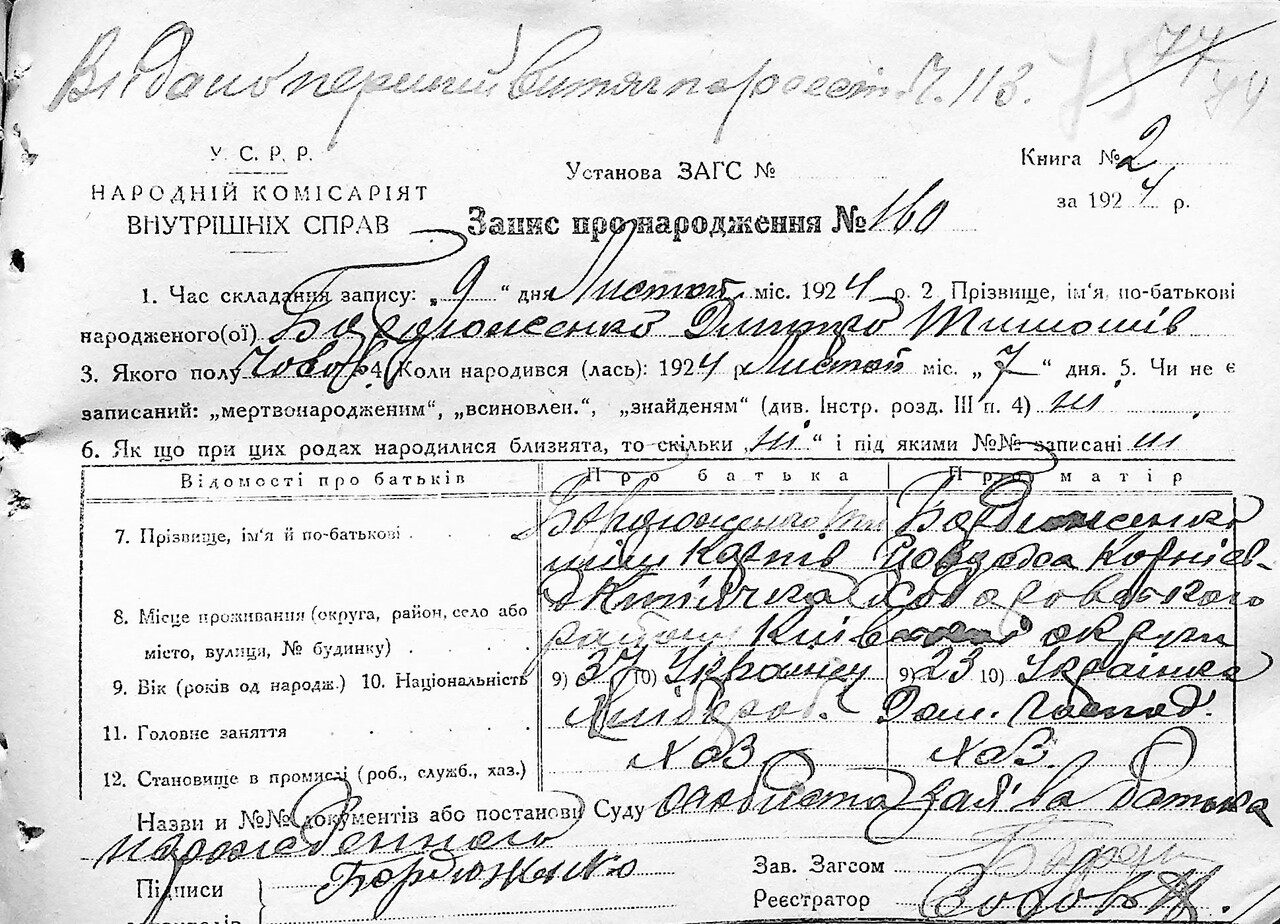 Видано перший витяг по реєст. Ч. 113.
У. С. Р. Р.
НАРОДНІЙ КОМІСАРІЯТ
ВНУТРІШНІХ СПРАВ
Установа ЗАГС №
Книга № 2
за 1924 р.
Запис про народження № 160
1. Час складання запису: „ 9 “ дня Листоп. міс. 1924 р. 2 Прізвище, ім'я, по-батькові
народженого(ої) Бордюженко Дмитро Тимошів
3. Якого полу Чолов. 4. Коли народився (лась): 1924 р. Листоп. міс. „ 7 “ дня. 5. Чи не є
записаний: „мертвонародженим“, „всиновлен.“, „знайденям“ (див. Інстр. розд. III п. 4) ні
6. Як що при цих родах народилися близнята, то скільки „ ні “ і під якими №№ записані ні
Відомості про батьків
Про батька
Про матір
7. Прізвище, ім'я й по-батькові
Бордюженко Ти
Бордюженко
міш Карпів
Корнієв.
8. Місце проживання (округа, район, село або
місто, вулиця, № будинку)
району Київської округи
9. Вік (років од народж.) 10. Національність
9) 37 10) Українец
9) 23 10) Українка
11. Головне заняття
Хлібороб.
Дом. господ.
12. Становище в промислі (роб., служб., хаз.)
хаз.
хаз.
Назви и №№ документів або постанови Суду особиста заява батька
народженного
Підписи
Бордюженко
Зав. Загсом
Реєстратор